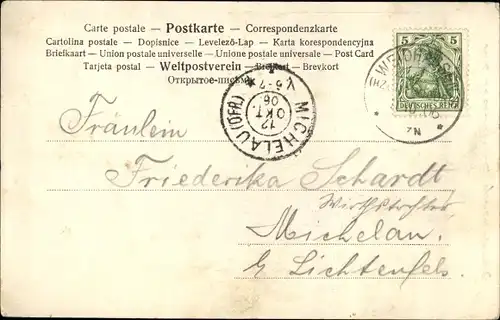 Carte postale – Postkarte – Correspondenzkarte
Cartolina postale – Dopisnice – Levelező-Lap – Karta korespondencyjna
Briefkaart – Union postale universelle – Unione postale universale – Post Card
Tarjeta postal – Weltpostverein – Brefkort – Brevkort
Открытое письмо
5 5
DEUTSCHES REICH
7N
MICHELAU (OFR)
12
OKT.
06
V.5-7
Fräulein
Friederika Schardt
Wirthstochter
Michelau.
b/ Lichtenfels.